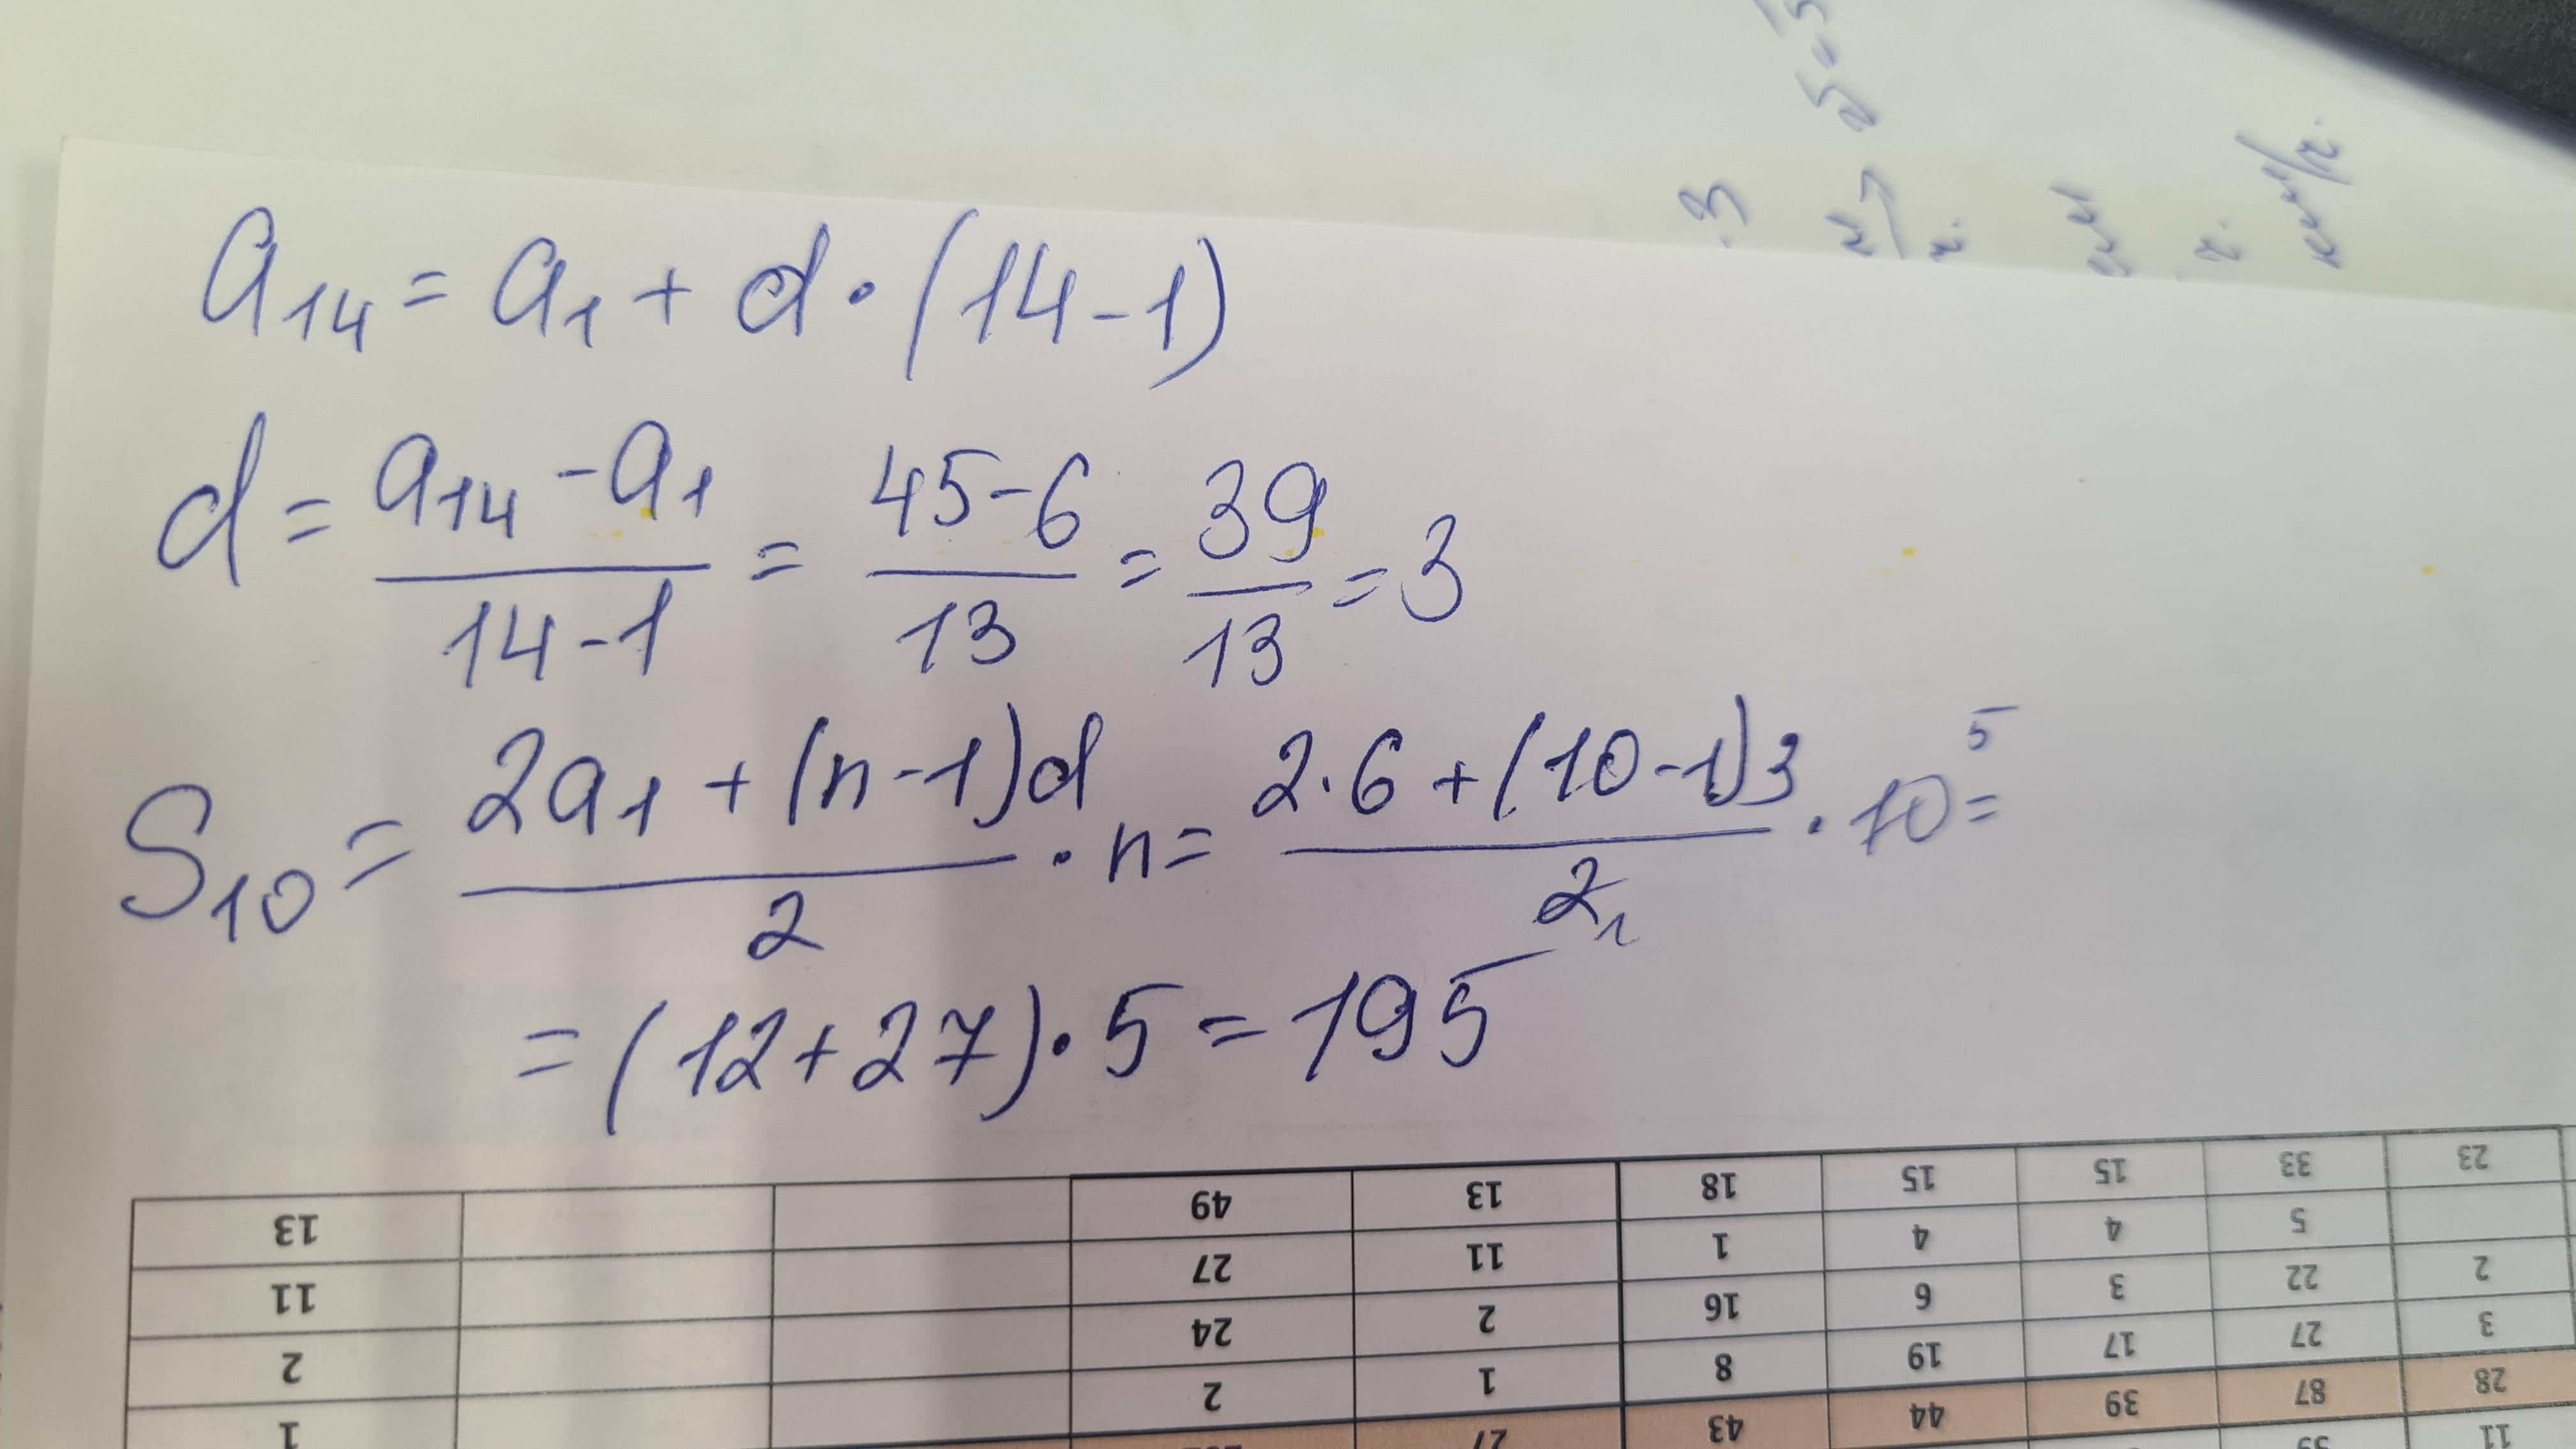 a₁₄ = a₁ + d · (14 - 1)
d = (a₁₄ - a₁)/(14 - 1) = (45 - 6)/13 = 39/13 = 3
S₁₀ = (2a₁ + (n - 1)d)/2 · n = (2 · 6 + (10 - 1)3)/2₁ · 10⁵ =
= (12 + 27) · 5 = 195
13 49 13 18 15 15 33 23
11 27 11 1 4 4 5
2 24 2 16 6 3 22 2
1 2 1 8 19 17 27 3
27 43 44 39 87 28
11